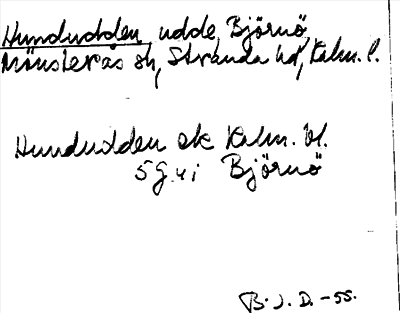 Hundudden udde, Björnö,
Mönsterås sn, Stranda hd, Kalm. l.
Hundudden ek Kalm. bl.
5 G 4 i Björnö
B. J. D. -55.